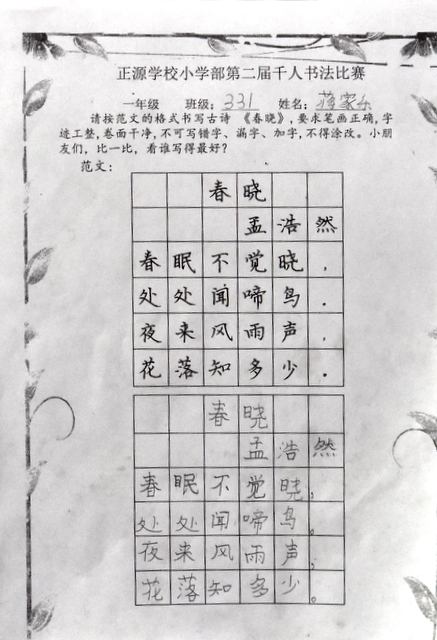 正源学校小学部第二届千人书法比赛
一年级 班级：331 姓名：蒋家乐
请按范文的格式书写古诗《春晓》，要求笔画正确，字
迹工整，卷面干净，不可写错字、漏字、加字，不得涂改。小朋
友们，比一比，看谁写得最好？
范文：
春晓
孟浩然
春眠不觉晓，
处处闻啼鸟。
夜来风雨声，
花落知多少。
春晓
孟浩然
春眠不觉晓，
处处闻啼鸟。
夜来风雨声，
花落知多少。